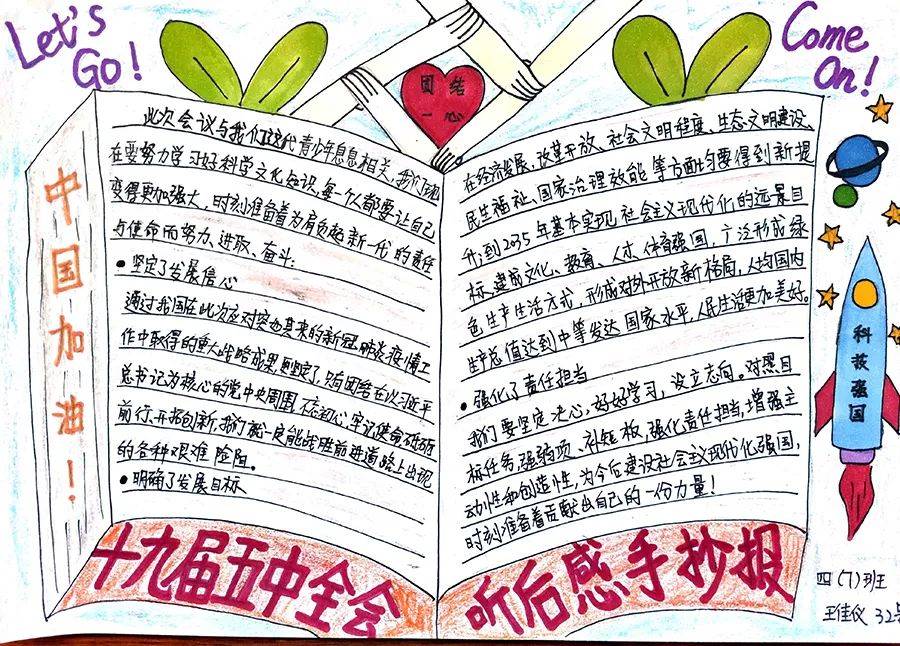 Let's
Go!
Come
On!
团结
一心
中国加油！
此次会议与我们现代青少年息息相关，我们现
在要努力学习好科学文化知识，每一个人都要让自己
变得更加强大，时刻准备着为肩负起新一代的责任
与使命而努力、进取、奋斗：
●坚定了发展信心
通过我国在此次应对突如其来的新冠肺炎疫情工
作中取得的重大战略成果，更坚定了，只有团结在以习近平
总书记为核心的党中央周围，不忘初心，牢记使命，砥砺
前行、开拓创新，我们就一定能战胜前进道路上出现
的各种艰难险阻。
●明确了发展目标
在经济发展、改革开放、社会文明程度、生态文明建设、
民生福祉、国家治理效能等方面均要得到新提
升，到2035年基本实现社会主义现代化的远景目
标，建成文化、教育、人才、体育强国，广泛形成绿
色生产生活方式，形成对外开放新格局，人均国内
生产总值达到中等发达国家水平，人民生活更加美好。
●强化了责任担当
我们要坚定决心，好好学习，设立志向。对照目
标任务，强弱项、补短板，强化责任担当，增强主
动性和创造性，为今后建设社会主义现代化强国，
时刻准备着贡献出自己的一份力量！
科技强国
十九届五中全会
听后感手抄报
四(7)班
王佳仪 32号